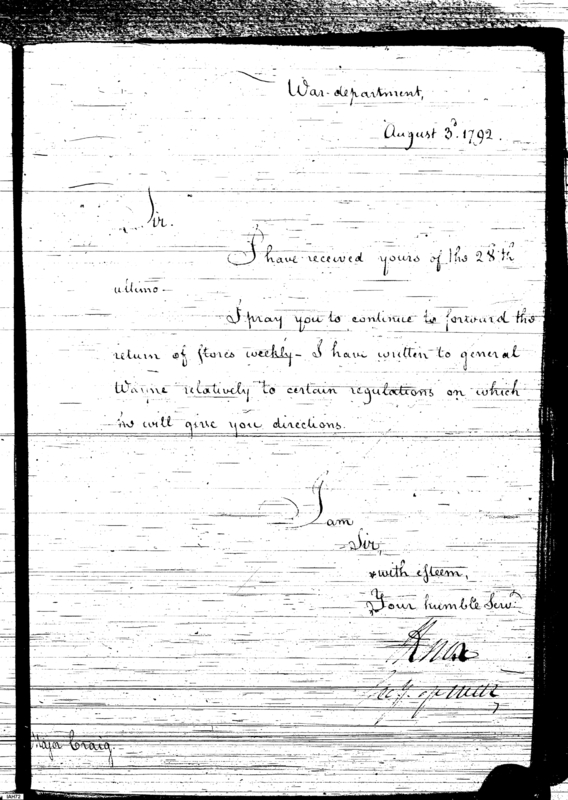 War-department,
August 3d. 1792.
Sir.
I have received yours of the 28th
ultimo.
I pray you to continue to forward the
return of stores weekly - I have written to general
Wayne relatively to certain regulations on which
he will give you directions.
I am
Sir,
with esteem,
Your humble Servt
HKnox
Secy of war
Major Craig.
IAH72